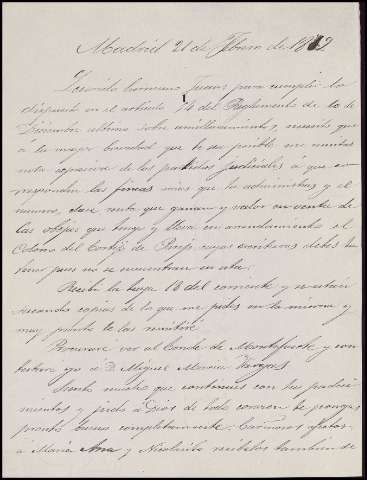 Madrid 21 de Febrero de 1879
Querido hermano Juan: para cumplir lo
dispuesto en el artículo 74 del Reglamento de 10 de
Diciembre último sobre amillaramientos, necesito que
á la mayor brevedad que te sea posible me mandes
nota expresiva de los partidos judiciales á que co-
rrespondan las fincas mias que tu administras y el
numero, clase nota que ganan y valor en venta de
las obejas que tengo y lleva en arrendamiento el
Colono del Cortijo de cuyas escrituras debes
tener pues no se encuentran en esta.
Recibí la tuya 18 del corriente y se estan
sacando copias de lo que me pides en la misma y
muy pronto te las remitiré.
Procuraré ver al Conde de Montefuerte y con-
testaré yo á D. Miguel Maria Vargas
Siento mucho que continues con tus padeci-
mientos y pido á Dios de todo corazon te pongas
pronto bueno completamente: Cariñosos afectos
á Maria Ana y Nicolasito recibelos tambien de